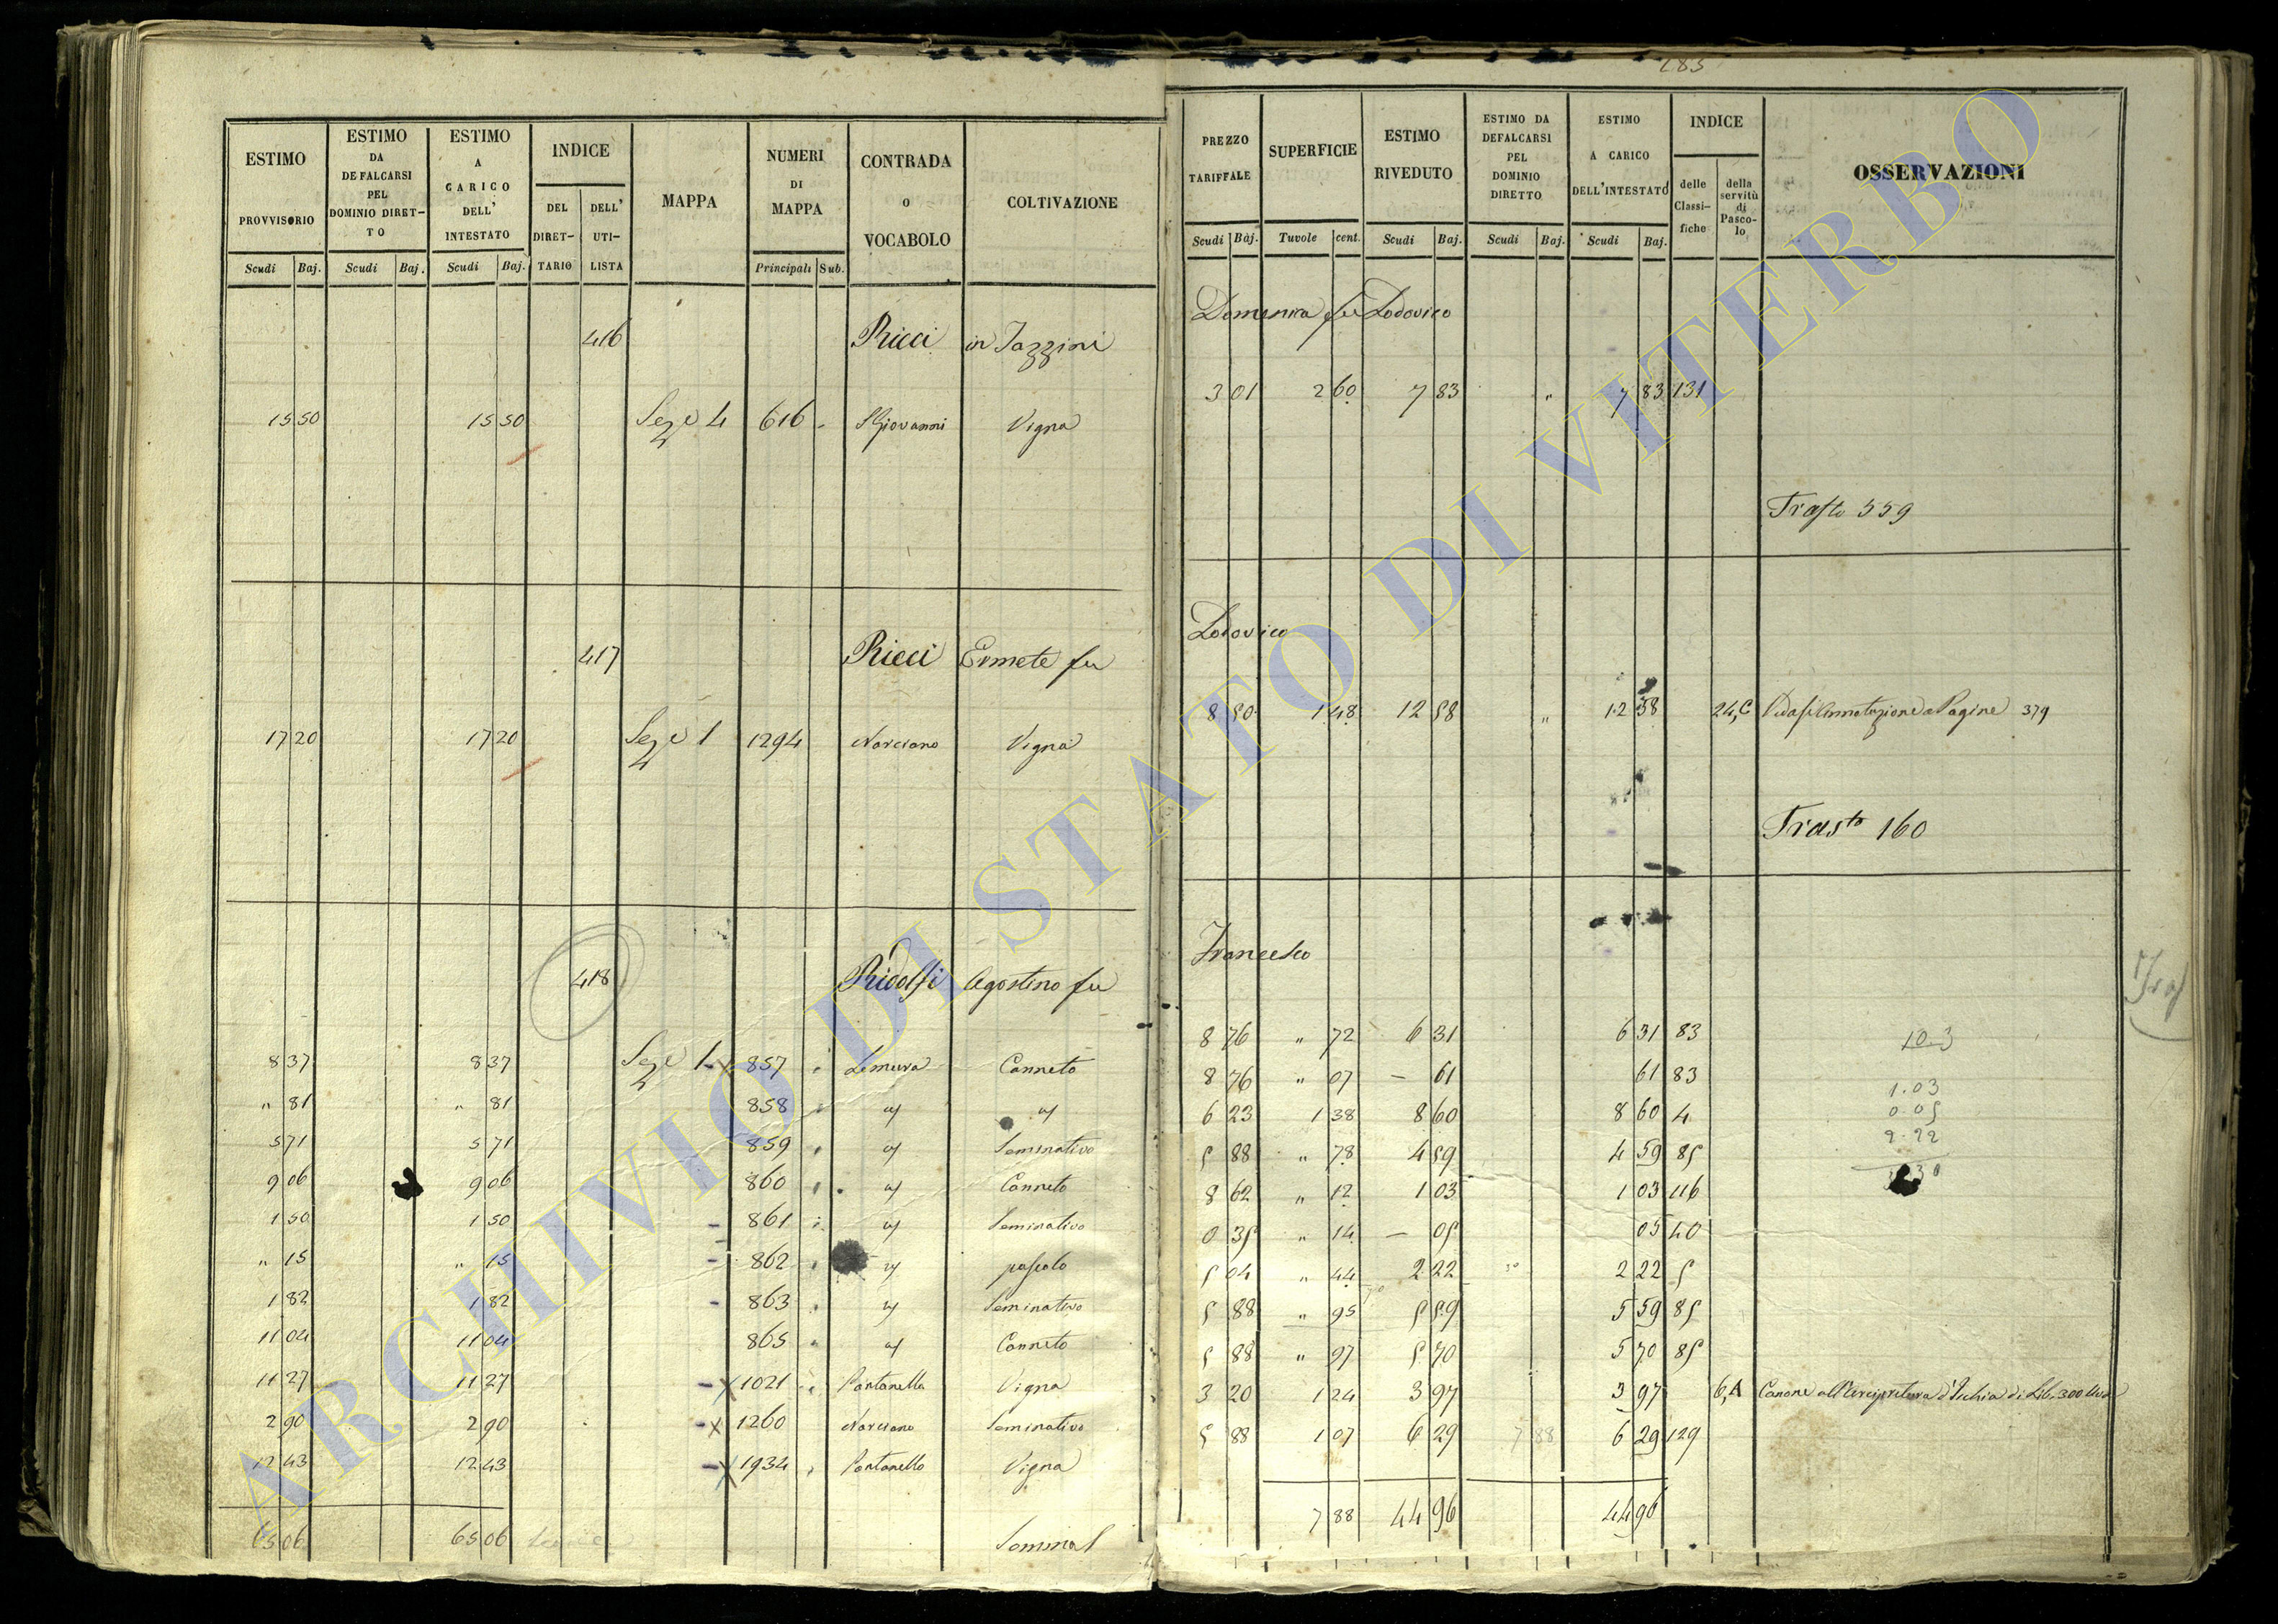 283
ESTIMO PROVVISORIO Scudi Baj.
ESTIMO DA DEFALCARSI PEL DOMINIO DIRET-TO Scudi Baj.
ESTIMO A CARICO DELL' INTESTATO Scudi Baj.
INDICE DEL DIRET-TARIO DELL' UTI-LISTA
MAPPA
NUMERI DI MAPPA Principali Sub.
CONTRADA O VOCABOLO
COLTIVAZIONE
PREZZO TARIFFALE Scudi Baj.
SUPERFICIE Tavole cent.
ESTIMO RIVEDUTO Scudi Baj.
ESTIMO DA DEFALCARSI PEL DOMINIO DIRETTO Scudi Baj.
ESTIMO A CARICO DELL'INTESTATO Scudi Baj.
INDICE delle Classi-fiche della servitù di Pasco-lo
OSSERVAZIONI
416 Ricci in Tazzini Domenica fu Lodovico
15 50 15 50 Sez.e 4 616 S Giovanni Vigna 3 01 2 60 7 83 " 7 83 131
Trasto 559
417 Ricci Ermete fu Lodovico
17 20 17 20 Sez.e 1 1294 Narciano Vigna 8 50 1 48 12 58 " 12 58 24,C Vedasi Annotazione a Pagine 379
Trasto 160
418 Ridolfi Agostino fu Francesco
8 37 8 37 Sez.e 1 857 Canneto 8 76 " 72 6 31 6 31 83
" 81 " 81 858 8 76 " 07 — 61 61 83
5 71 5 71 859 Seminativo 6 23 1 38 8 60 8 60 4
9 06 9 06 860 Canneto 5 88 " 78 4 59 4 59 85
1 50 1 50 861 Seminativo 8 62 " 12 1 03 1 03 116
" 15 " 15 862 pascolo 0 35 " 14 — 05 05 40
1 82 1 82 863 Seminativo 5 04 " 44 2 22 2 22 5
11 04 11 04 865 Canneto 5 88 " 95 5 59 5 59 85
11 27 11 27 1021 Pontanella Vigna 5 88 " 97 5 70 5 70 85
2 90 2 90 1260 Narciano Seminativo 3 20 1 24 3 97 3 97 6,A Canone all'Arcipretura d'Ischia di Lib. 300
12 43 12 43 1934 Pontanello Vigna 5 88 1 07 6 29 7 88 6 29 129
65 06 65 06 7 88 44 96 44 96
Seminat
10.3
1.03
0.05
2.22
Tras
ARCHIVIO DI STATO DI VITERBO